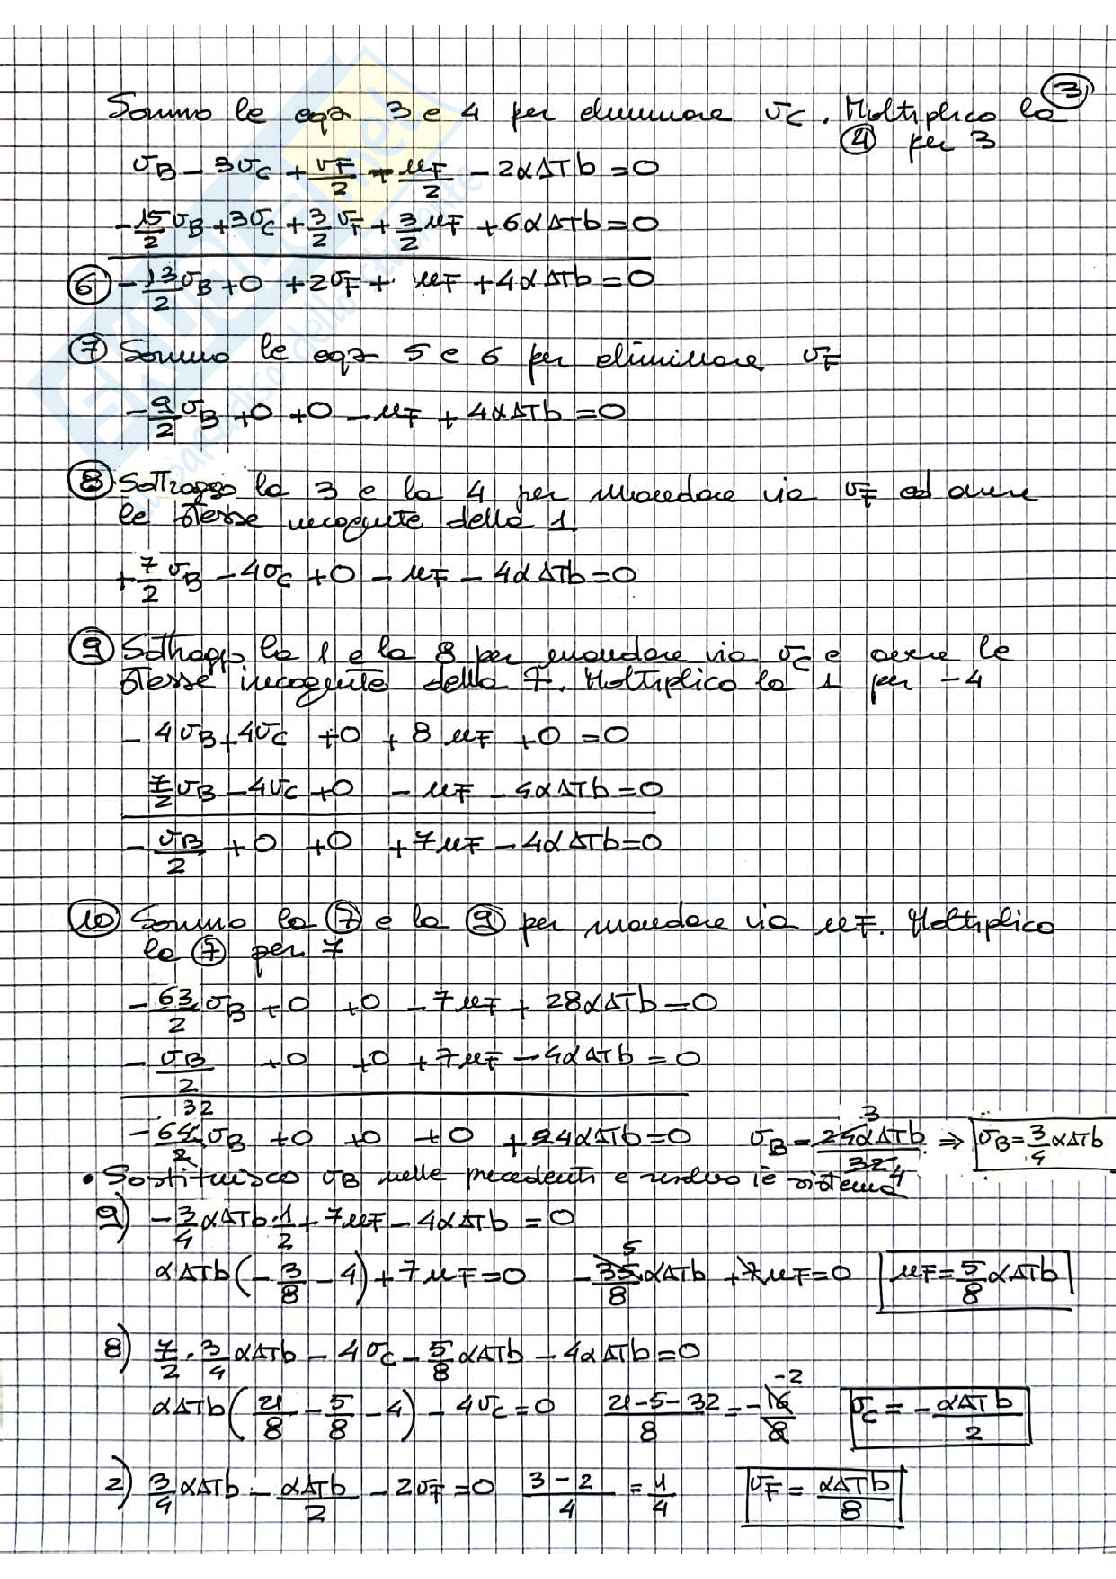 ③
Sommo le eqz 3 e 4 per eliminare vC. Moltiplico la
④ per 3
vB - 3vC + vF/2 + uF/2 - 2αΔTb = 0
-15/2 vB + 3vC + 3/2 vF + 3/2 uF + 6αΔTb = 0
⑥ -13/2 vB + 0 + 2vF + uF + 4αΔTb = 0
⑦ Sommo le eqz 5 e 6 per eliminare vF
-9/2 vB + 0 + 0 - uF + 4αΔTb = 0
⑧ Sottraggo la 3 e la 4 per mandare via vF ed avere
le stesse incognite della 1
+7/2 vB - 4vC + 0 - uF - 4αΔTb = 0
⑨ Sottraggo la 1 e la 8 per mandare via vC e avere le
stesse incognite della 7. Moltiplico la 1 per -4
- 4vB + 4vC + 0 + 8uF + 0 = 0
7/2 vB - 4vC + 0 - uF - 4αΔTb = 0
- vB/2 + 0 + 0 + 7uF - 4αΔTb = 0
⑩ Sommo la ⑦ e la ⑨ per mandare via uF. Moltiplico
la ⑦ per 7
-63/2 vB + 0 + 0 - 7uF + 28αΔTb = 0
- vB/2 + 0 + 0 + 7uF - 4αΔTb = 0
32
-64/2 vB + 0 + 0 + 0 + 24αΔTb = 0 vB = 24αΔTb/32 3 4 ⇒ vB = 3/4 αΔTb
• Sostituisco vB nelle precedenti e risolvo il sistema
9) -3/4 αΔTb · 1/2 + 7uF - 4αΔTb = 0
αΔTb(-3/8 - 4) + 7uF = 0 -35/8 5 αΔTb + 7uF = 0 uF = 5/8 αΔTb
8) 7/2 · 3/4 αΔTb - 4vC - 5/8 αΔTb - 4αΔTb = 0
αΔTb(21/8 - 5/8 - 4) - 4vC = 0 21-5-32/8 = -16/8 -2 vC = - αΔTb/2
2) 3/4 αΔTb - αΔTb/2 - 2vF = 0 3-2/4 = 1/4 vF = αΔTb/8